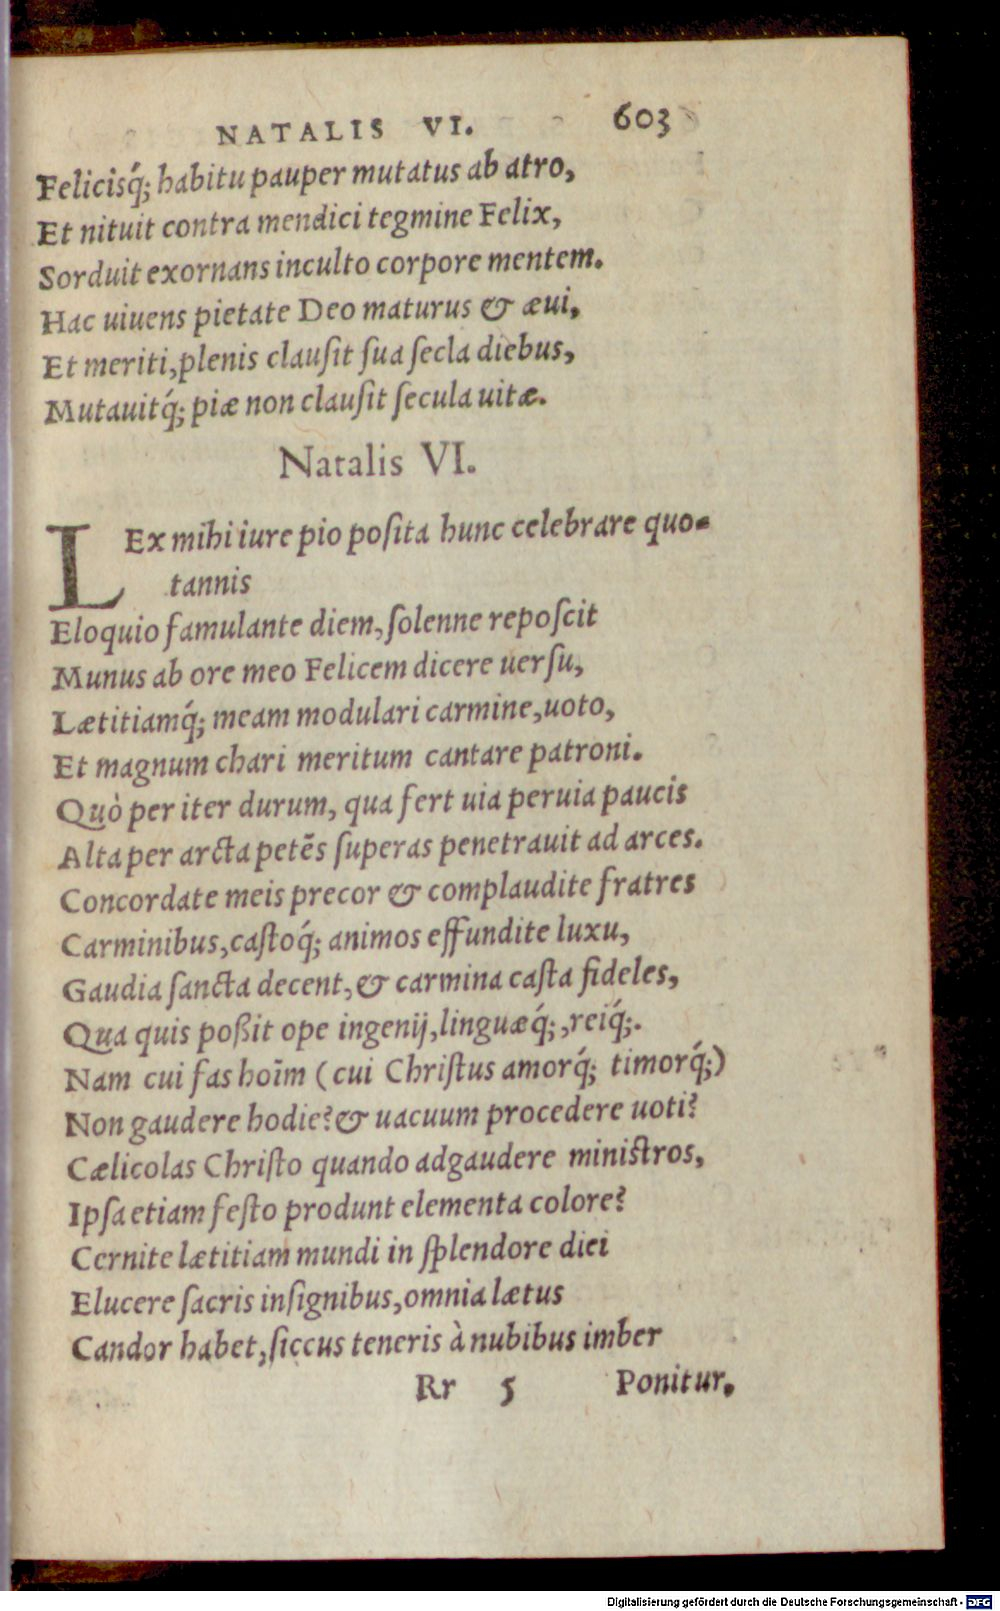 NATALIS VI. 603
Felicisq́; habitu pauper mutatus ab atro,
Et nituit contra mendici tegmine Felix,
Sorduit exornans inculto corpore mentem.
Hac uiuens pietate Deo maturus & æui,
Et meriti, plenis clauſit ſua ſecla diebus,
Mutauitq́; piæ non clauſit ſecula uitæ.
Natalis VI.
LEx mihi iure pio poſita hunc celebrare quo-
tannis
Eloquio famulante diem, ſolenne repoſcit
Munus ab ore meo Felicem dicere uerſu,
Lætitiamq́; meam modulari carmine, uoto,
Et magnum chari meritum cantare patroni.
Quò per iter durum, qua fert uia peruia paucis
Alta per arcta petẽs ſuperas penetrauit ad arces.
Concordate meis precor & complaudite fratres
Carminibus, caſtoq́; animos effundite luxu,
Gaudia ſancta decent, & carmina caſta fideles,
Qua quis poßit ope ingenij, linguæq́;, reiq́;.
Nam cui fas hoĩm (cui Chriſtus amorq́; timorq́;)
Non gaudere hodie? & uacuum procedere uoti?
Cælicolas Chriſto quando adgaudere miniſtros,
Ipſa etiam feſto produnt elementa colore?
Cernite lætitiam mundi in ſplendore diei
Elucere ſacris inſignibus, omnia lætus
Candor habet, ſiccus teneris à nubibus imber
Rr 5 Ponitur.
Digitalisierung gefördert durch die Deutsche Forschungsgemeinschaft - DFG